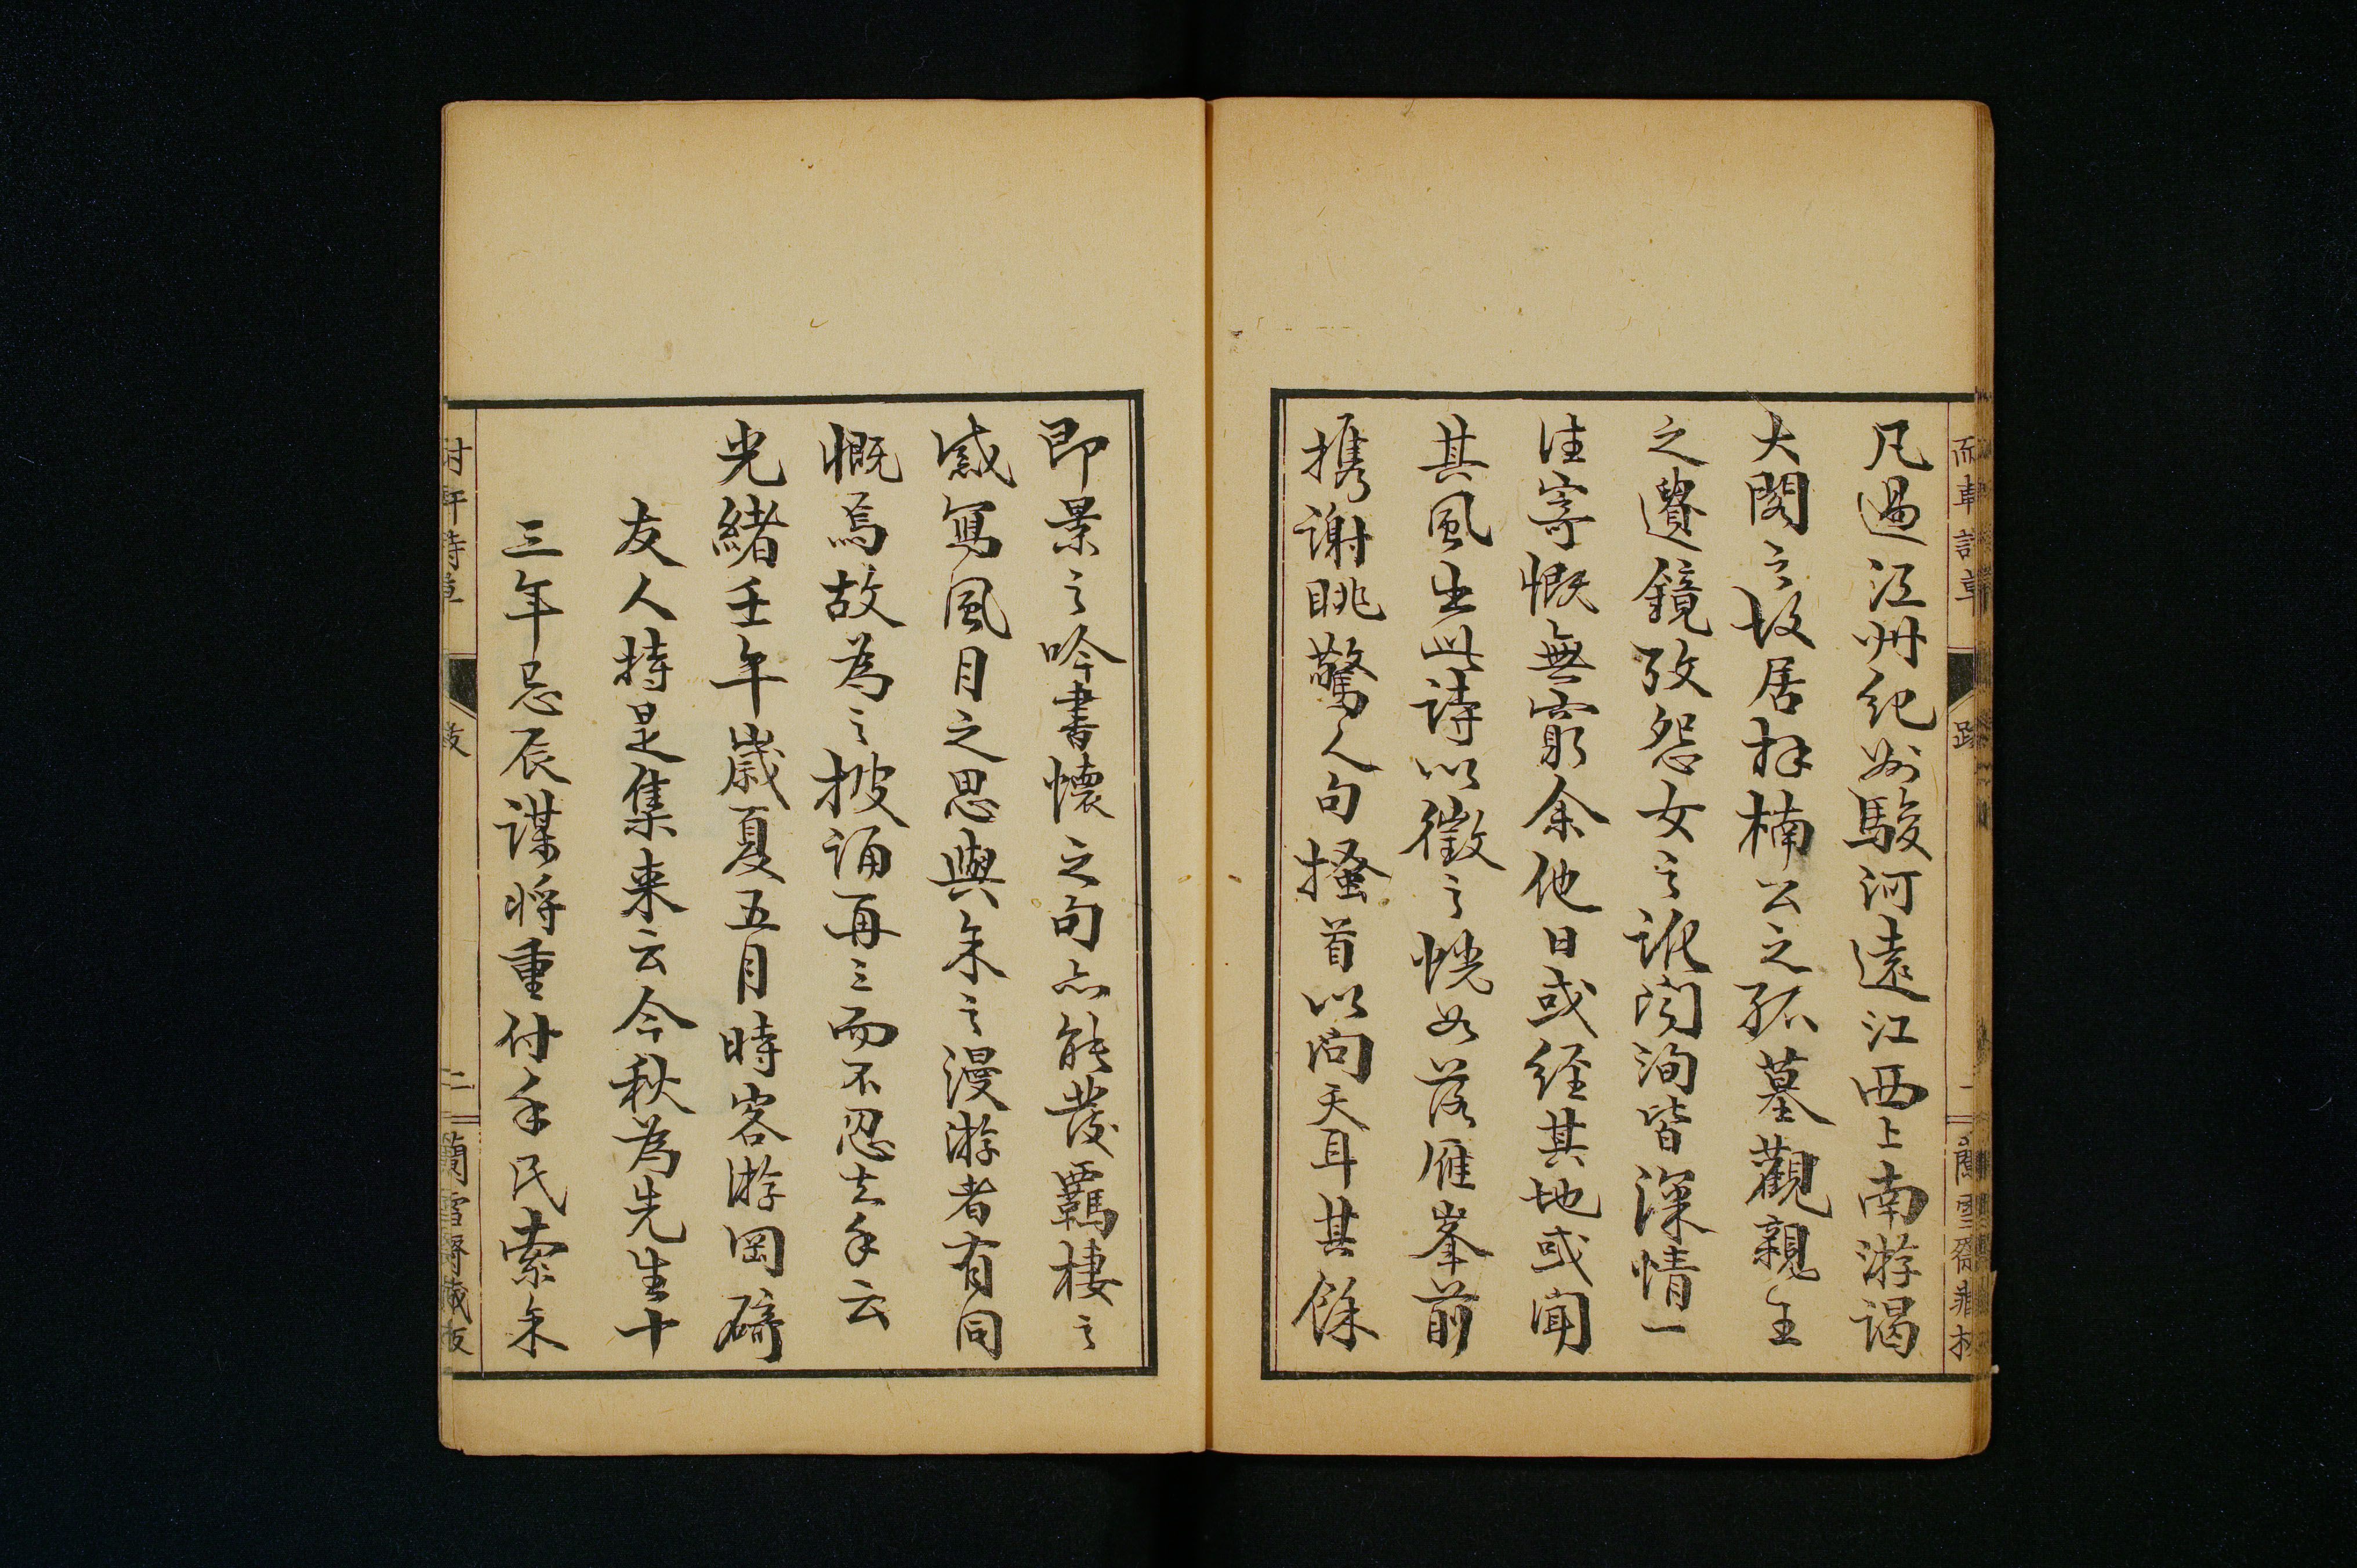 凡過江州紀州駿河遠江西上南游謁
大閤之故居拜楠公之孤墓觀親王
之遺鏡弔怨女之訛聞洵皆深情一
往寄慨無窮余他日或經其地或聞
其風出此詩以徵之恍如落雁峯前
攜謝眺驚人句搔首以問天耳其餘
即景之吟書懷之句亦能發羈棲之
感寫風月之思與余之漫游者有同
慨焉故為之披誦再三而不忍去手云
光緒壬午歲夏五月時客游岡碕
友人持是集來云今秋為先生十
三年忌辰謀將重付手民索余
跋
二
蘭雪齋藏板